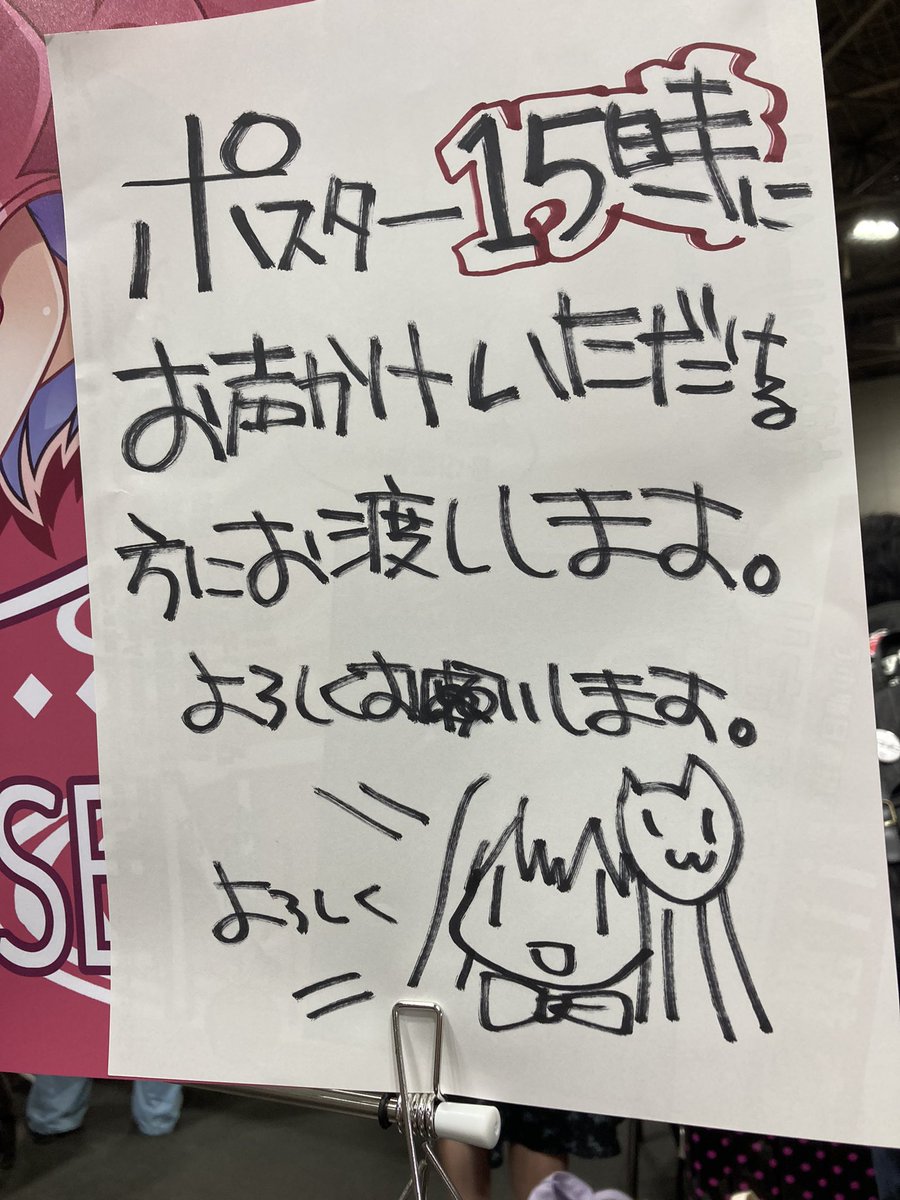 ポスター15時に
お声かけいただける
方にお渡しします。
よろしくお願いします。
よろしく
SE